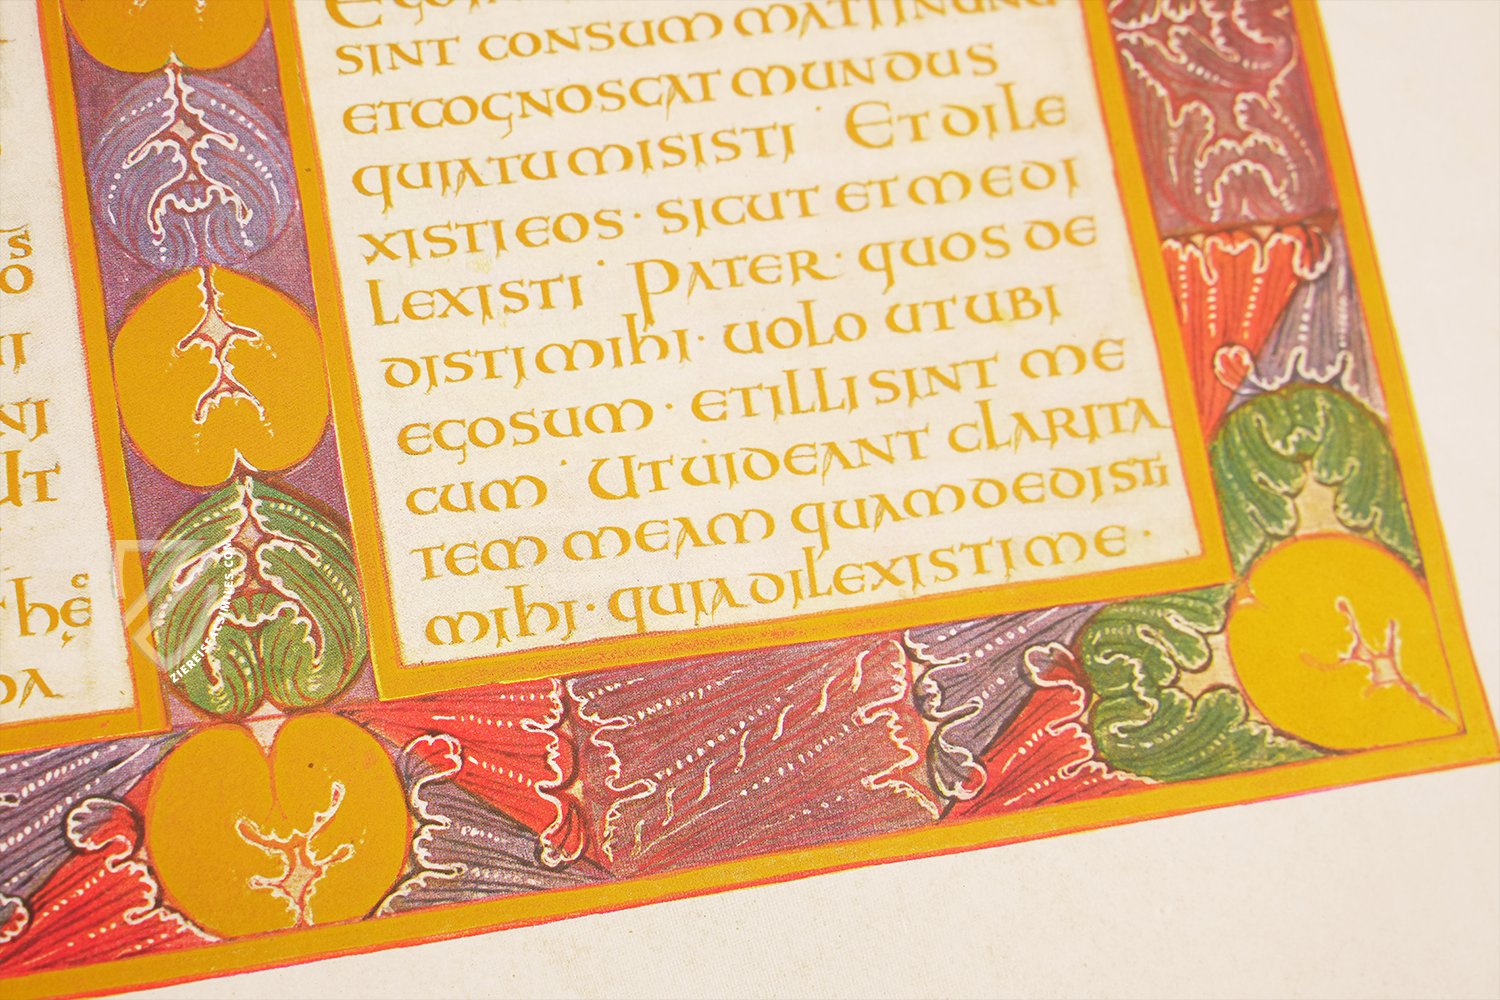 S
O
NI
UT
hę
DA
SINT CONSUMMATI IN UNUM
ETCOGNOSCAT MUNDUS
QUIATUMISISTI · ET DILE
XISTIEOS · SICUT ET MEDI
LEXISTI · PATER · QUOS DE
DISTI MIHI · UOLO UT UBI
EGOSUM · ETILLI SINT ME
CUM · UT UIDEANT CLARITA
TEM MEAM QUAMDEDISTI
MIHI · QUIADILEXISTI ME ·
ZIEREIS FACSIMILES.COM